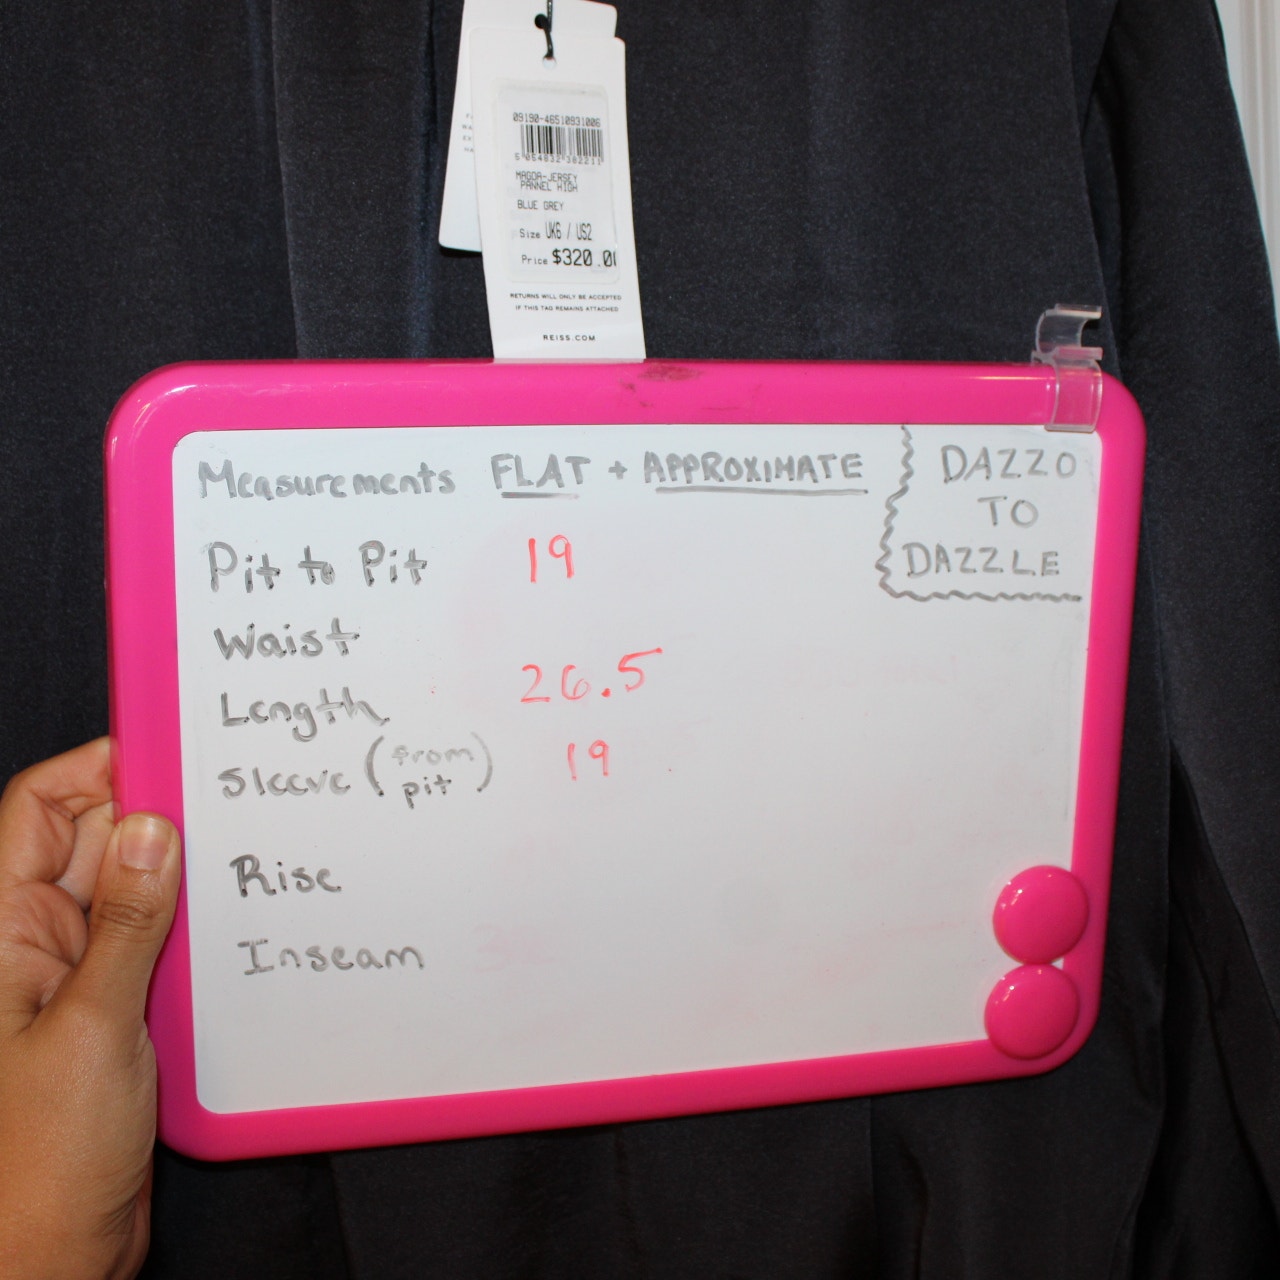 09190-46510931006
5 054832 382211
MAGDA-JERSEY
PANNEL HIGH
BLUE GREY
Size UK6 / US2
Price $320.00
RETURNS WILL ONLY BE ACCEPTED
IF THIS TAG REMAINS ATTACHED
REISS.COM
Measurements FLAT + APPROXIMATE
DAZZO
TO
DAZZLE
Pit to Pit 19
Waist
Length 26.5
Sleeve (from pit) 19
Rise
Inseam